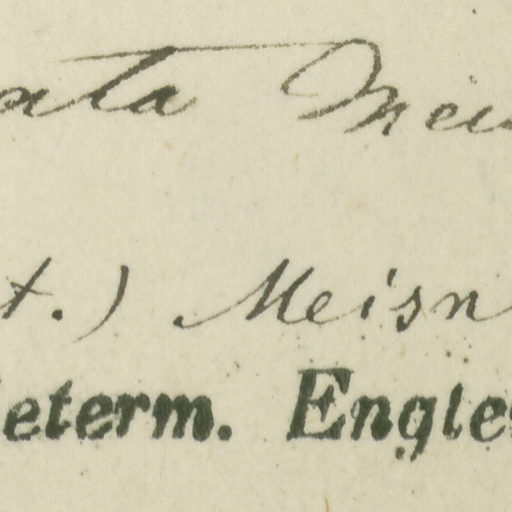 ata Mei
t.) Meisn
eterm. Engle